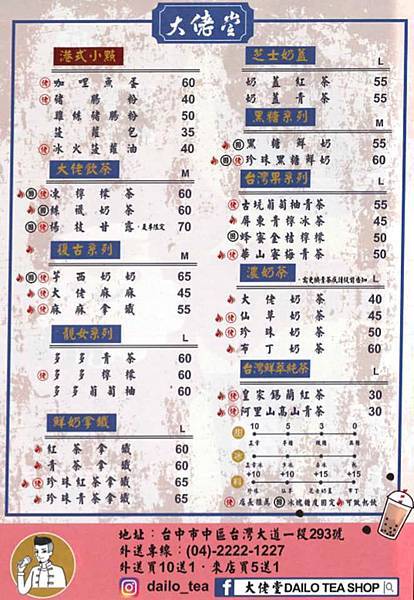 大佬堂
港式小點
咖哩魚蛋 60
佬 豬腸粉 40
雞絲豬腸粉 50
菠蘿包 35
佬 冰火菠蘿油 40
大佬飲茶 M
凍檸檬茶 60
絲襪奶茶 60
楊枝甘露 70
復古系列 M
芋西奶奶 65
佬 大佬麻麻 45
佬 麻麻拿鐵 55
靚女系列 L
多多青茶 60
佬 多多檸檬 60
多多葡萄柚 60
鮮奶拿鐵 L
紅茶拿鐵 60
青茶拿鐵 60
佬 珍珠紅茶拿鐵 65
珍珠青茶拿鐵 65
芝士奶蓋 L
奶蓋紅茶 55
奶蓋青茶 55
黑糖系列 L
黑糖鮮奶 55
珍珠黑糖鮮奶 60
台灣果系列 L
佬 古坑葡萄柚青茶 55
屏東青檸冰茶 45
蜂蜜金桔檸檬 50
佬 華山蜜梅青茶 50
濃奶茶 L
大佬奶茶 40
佬 仙草奶茶 45
佬 珍珠奶茶 50
佬 布丁奶茶 60
台灣鮮萃純茶 L
佬 皇家錫蘭紅茶 30
佬 阿里山高山青茶 30
甜 10 5 3 0
冰
料 +10 +10 +15 +15
珍珠 仙草 芝士奶蓋 布丁
佬 店長推薦 固 冰塊糖度固定 可做熱飲
地址:台中市中區台灣大道一段293號
外送專線:(04)-2222-1227
外送買10送1.來店買5送1
dailo_tea 大佬堂DAILO TEA SHOP